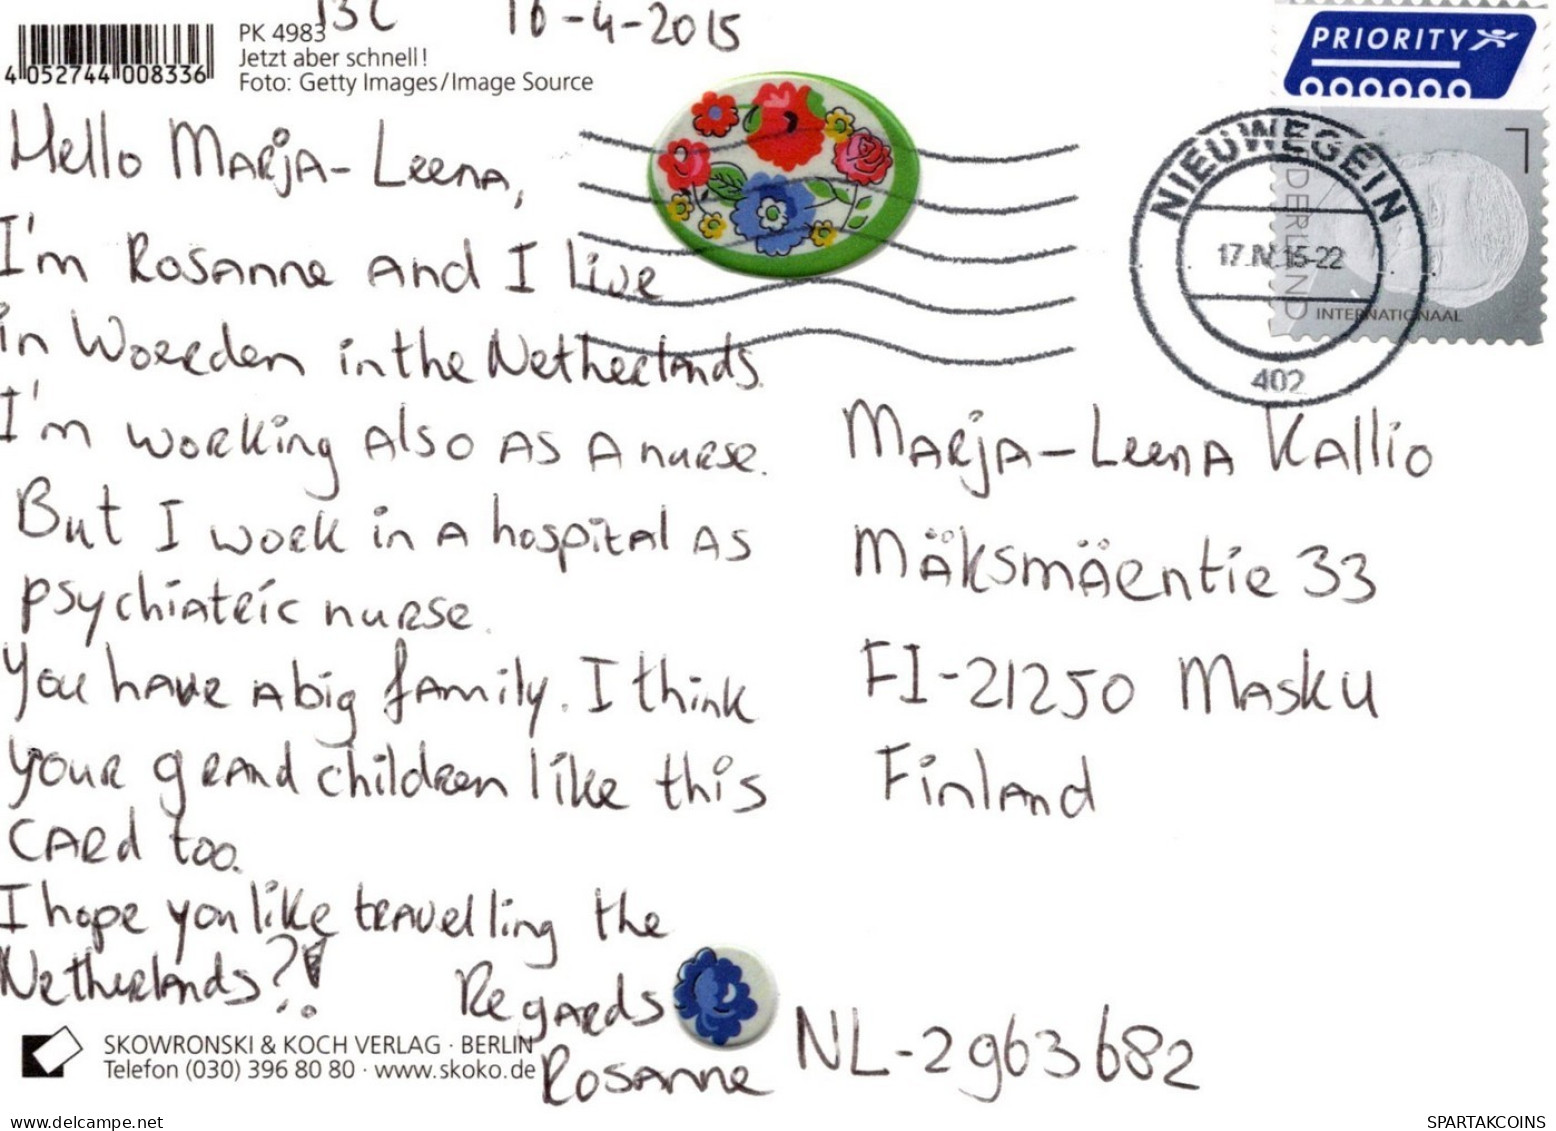 13C 16-4-2015
PK 4983
Jetzt aber schnell!
Foto: Getty Images/Image Source
4 052744 008336
PRIORITY
NIEUWEGEIN
17.IV.15-22
402
DERLAND
INTERNATIONAAL
1
Hello Marja-Leena,
I'm Rosanne and I live
in Woerden in the Netherlands.
I'm working also as a nurse.
But I work in a hospital as
psychiatric nurse.
You have a big family. I think
your grand children like this
card too.
I hope you like travelling the
Netherlands?!
Regards
Rosanne
Marja-Leena Kallio
Mäksmäentie 33
FI-21250 Masku
Finland
NL-2963682
SKOWRONSKI & KOCH VERLAG · BERLIN
Telefon (030) 396 80 80 · www.skoko.de
www.delcampe.net
SPARTAKCOINS